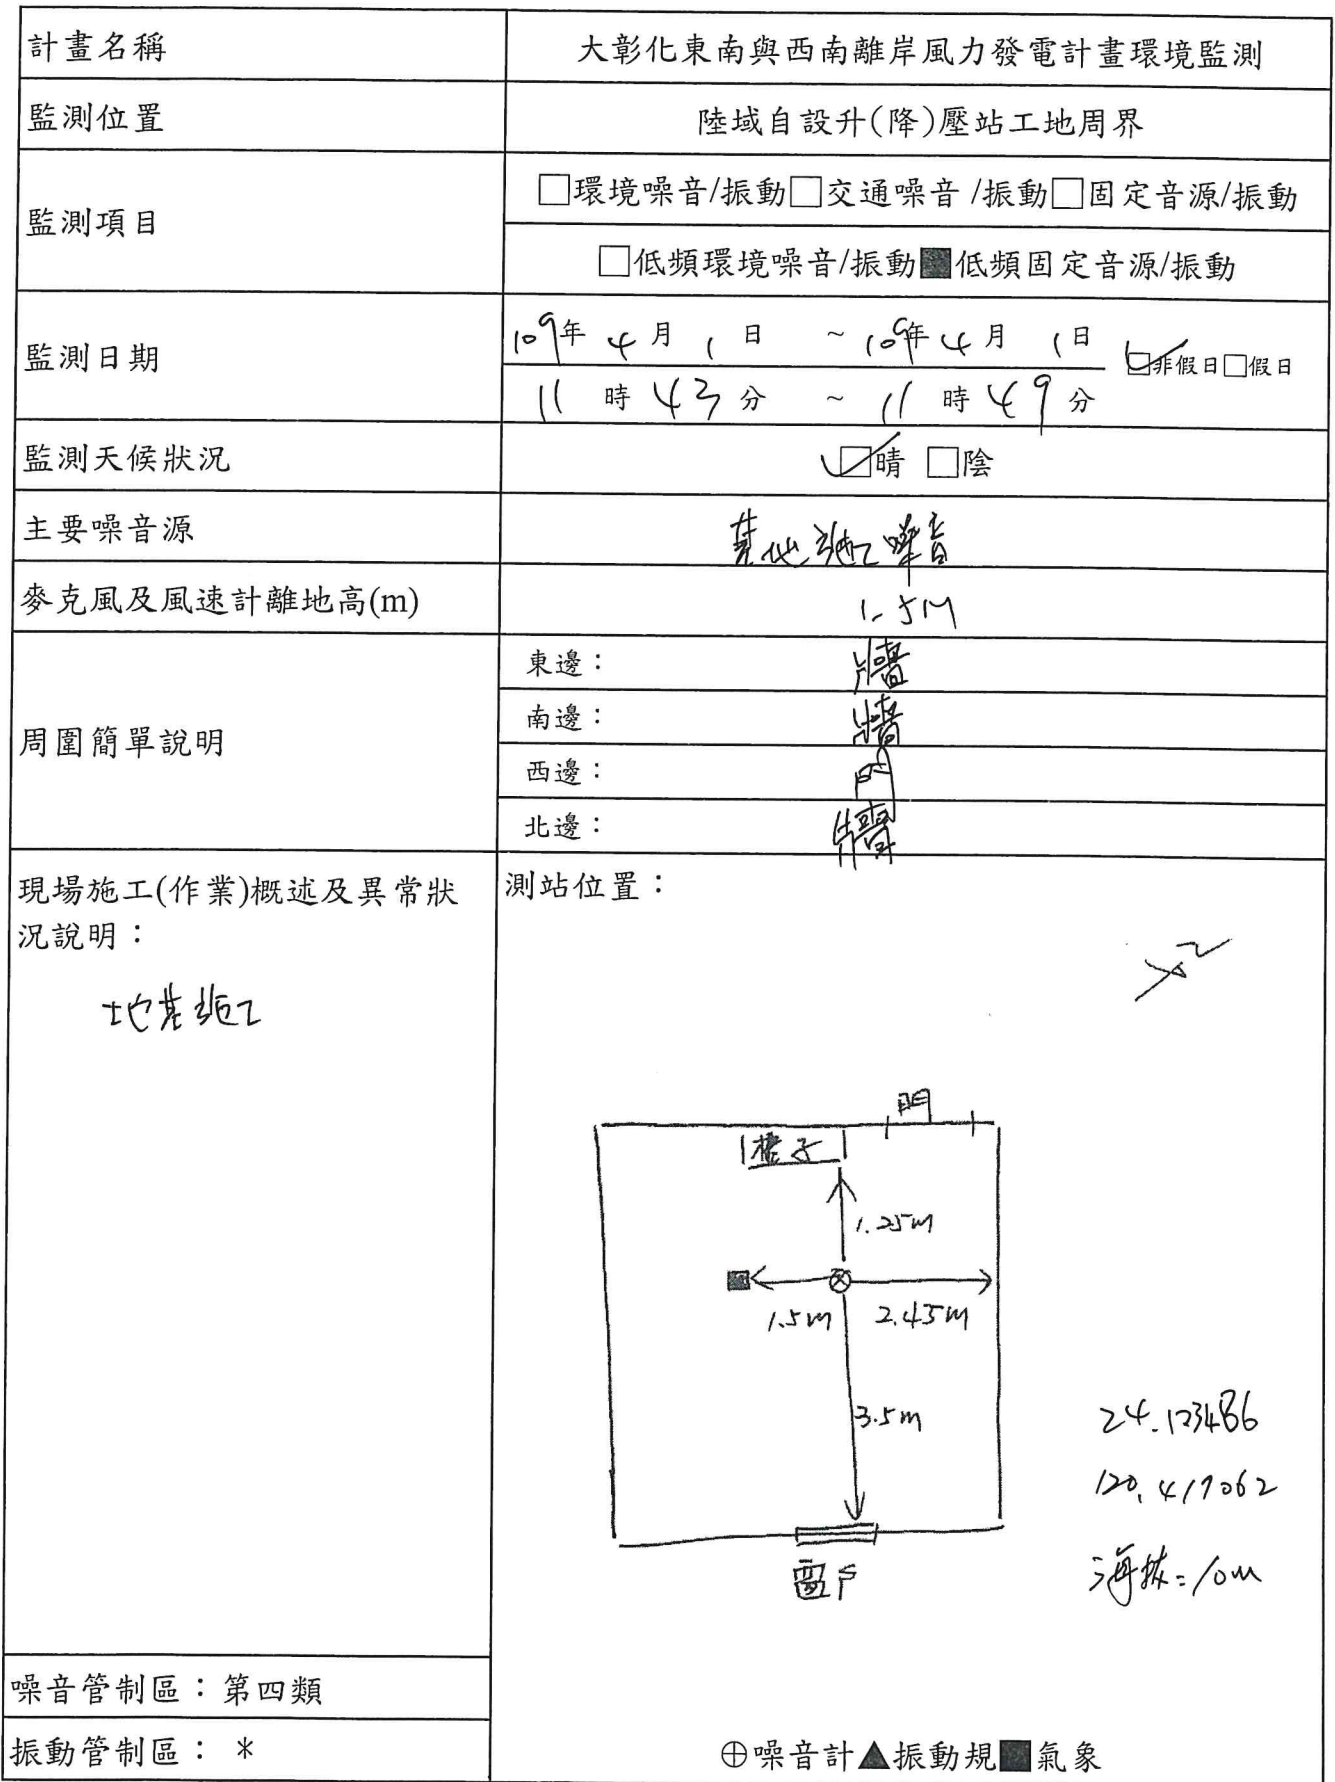 計畫名稱 大彰化東南與西南離岸風力發電計畫環境監測
監測位置 陸域自設升(降)壓站工地周界
監測項目 □環境噪音/振動□交通噪音 /振動□固定音源/振動
□低頻環境噪音/振動■低頻固定音源/振動
監測日期 109年 4月 1日 ~ 109年 4月 1日 ☑非假日□假日
11時 43分 ~ 11時 49分
監測天候狀況 ☑晴 □陰
主要噪音源 基地施工噪音
麥克風及風速計離地高(m) 1.5M
周圍簡單說明 東邊： 牆
南邊： 牆
西邊： 門
北邊： 牆
現場施工(作業)概述及異常狀
況說明：
地基施工
測站位置：
門
櫃子
1.25m
1.5m 2.45m
3.5m
窗戶
海拔=10m
噪音管制區：第四類
振動管制區： *
⊕噪音計▲振動規■氣象